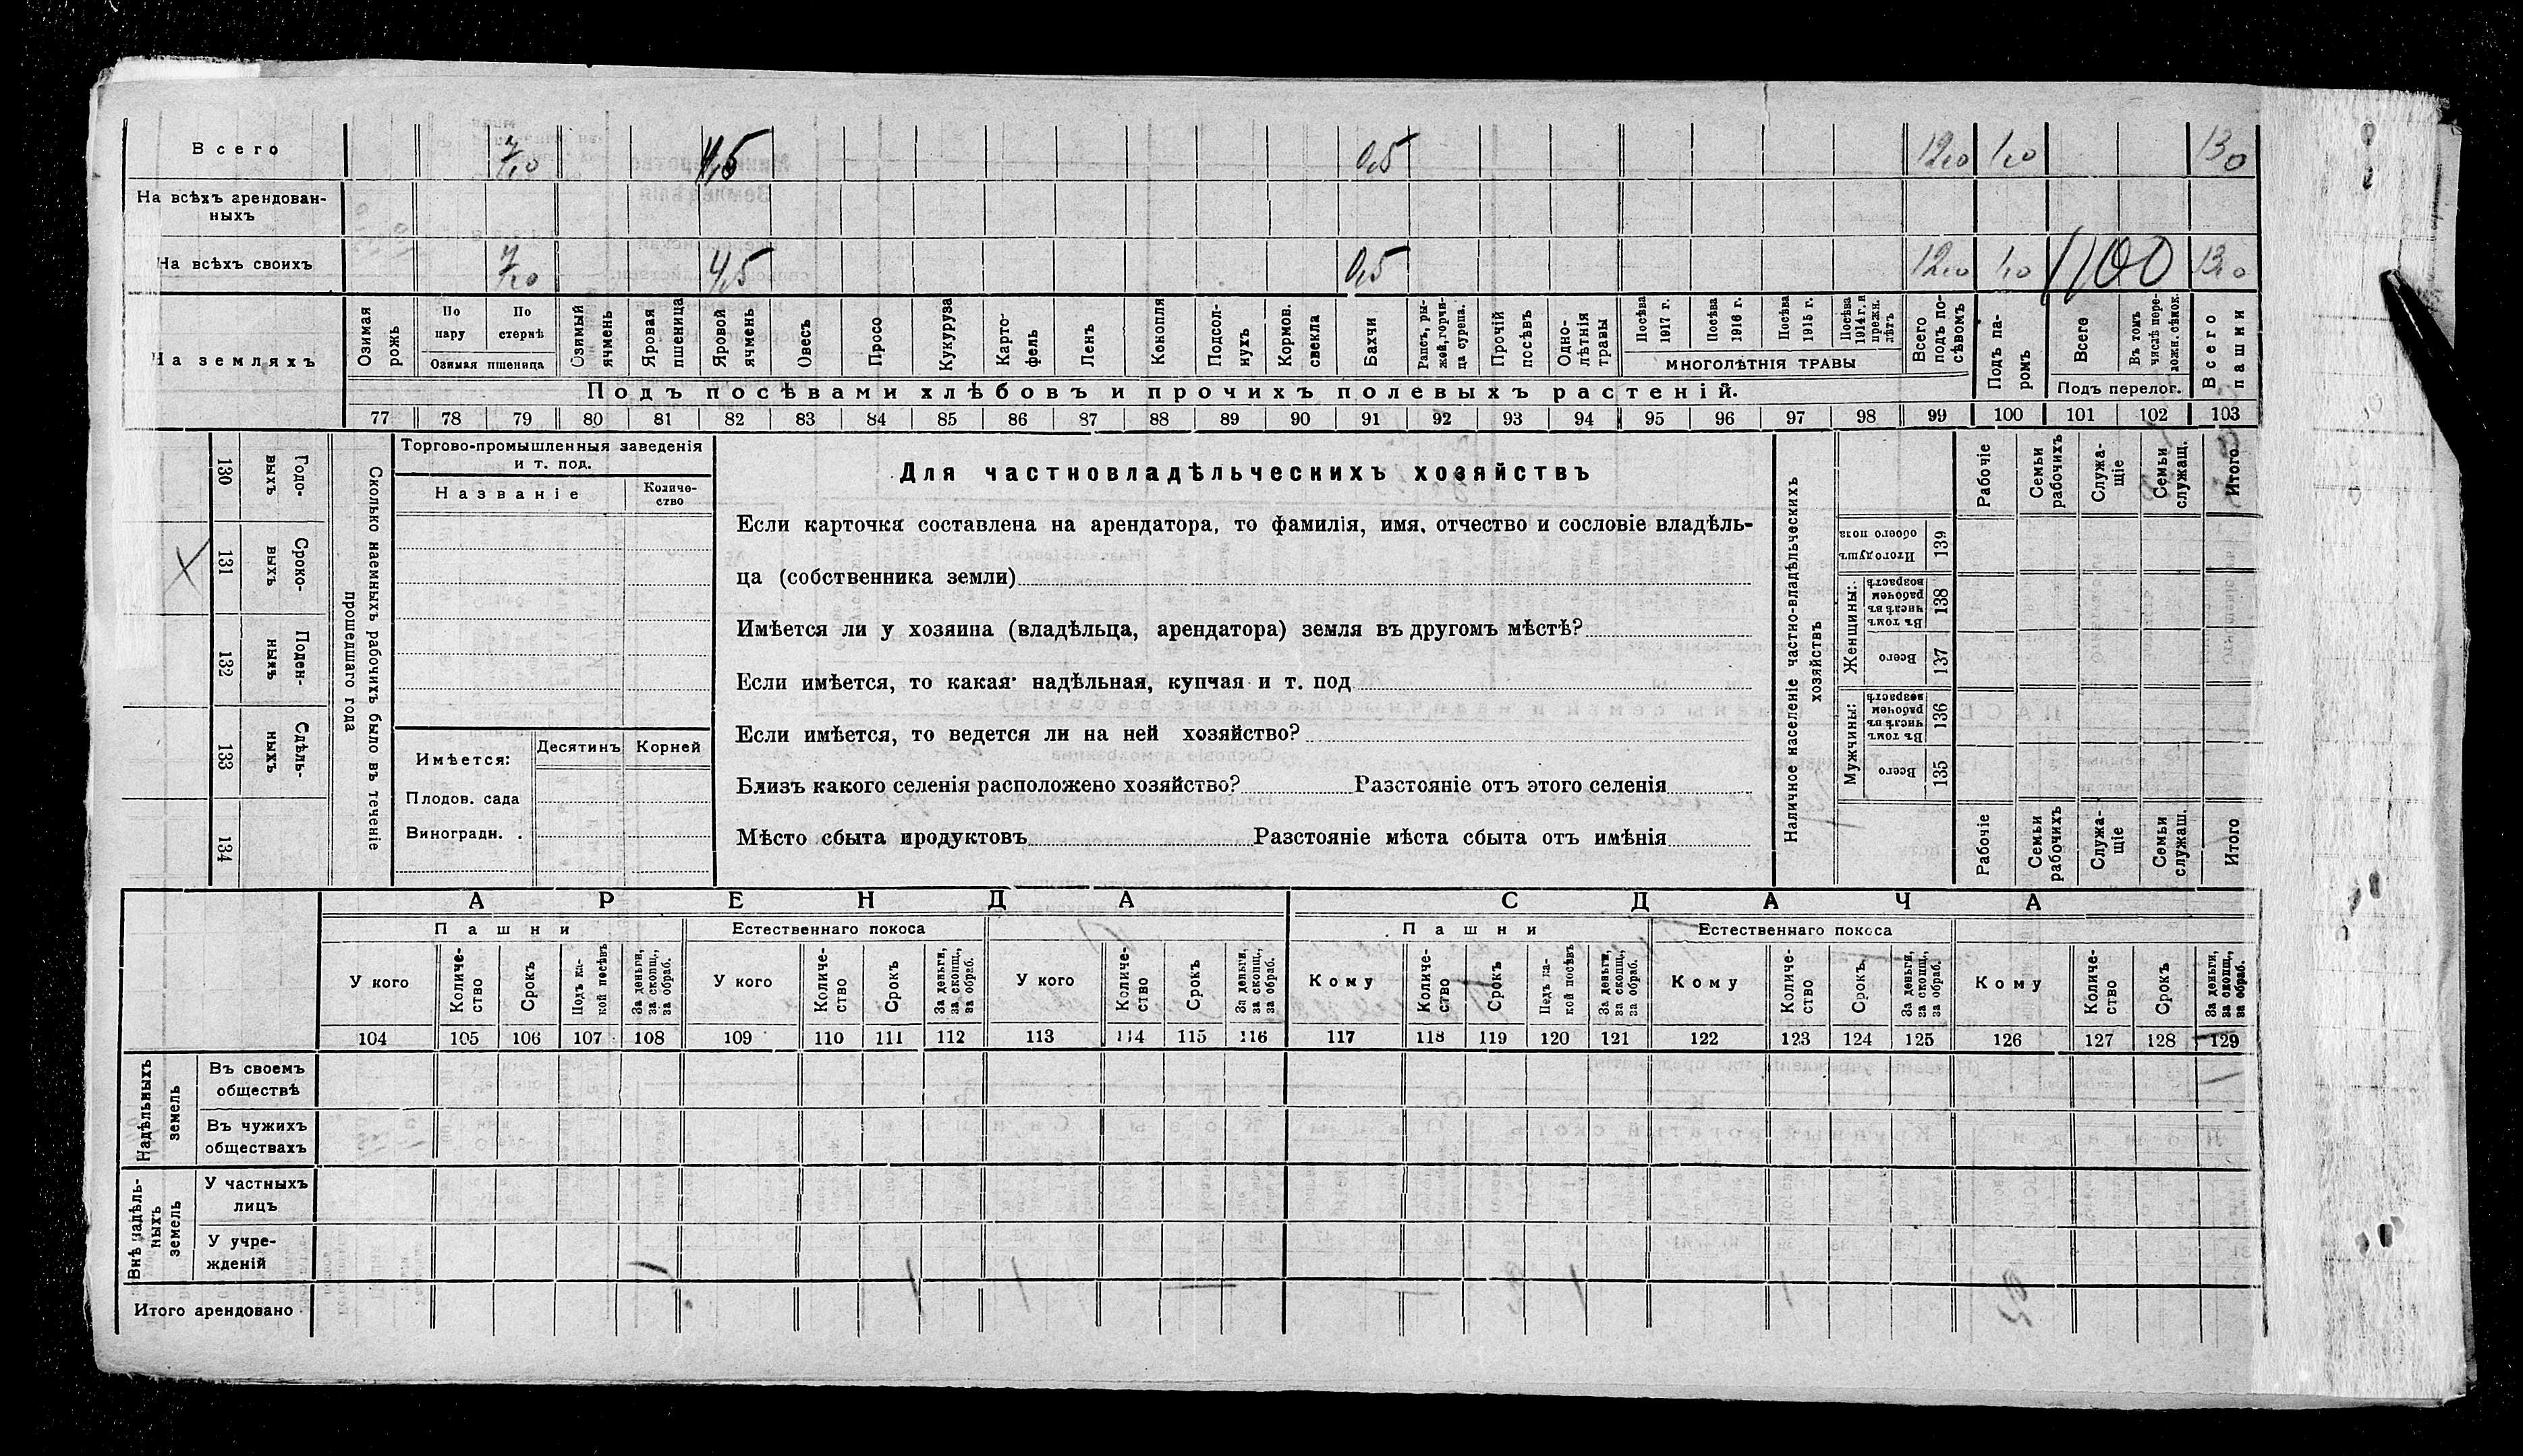 Всего 7,0 4,5 0,5 12,0 1,0 13,0
На всѣхъ арендован-
ныхъ
На всѣхъ своихъ 7,0 4,5 0,5 12,0 1,0 1100 13,0
На земляхъ
Озимая рожь
По пару
По стернѣ
Озимая пшеница
Озимый ячмень
Яровая пшеница
Яровой ячмень
Овесъ
Просо
Кукуруза
Карто-
фель
Ленъ
Конопля
Подсол-
нухъ
Кормов. свекла
Бахчи
Рапсъ, ры-
жей, горчи-
ца сурепа.
Прочій посѣвъ
Одно-
лѣтнія травы
Посѣва 1917 г.
Посѣва 1916 г.
Посѣва 1915 г.
Посѣва 1914 г. и прежн. лѣтъ
МНОГОЛѢТНІЯ ТРАВЫ
Всего подъ по-
сѣвомъ
Подъ па-
ромъ
Всего
Въ томъ числѣ пере-
ложн. сѣнок.
Подъ перелог.
Всего пашни
Подъ посѣвами хлѣбовъ и прочихъ полевыхъ растеній.
77 78 79 80 81 82 83 84 85 86 87 88 89 90 91 92 93 94 95 96 97 98 99 100 101 102 103
130 Годо-
выхъ
131 Сроко-
выхъ
132 Поден-
ныхъ
133 Сдѣль-
ныхъ
134
Сколько наемныхъ рабочихъ было въ теченіе
прошедшаго года
Торгово-промышленныя заведенія
и т. под.
Названіе
Количе-
ство
Имѣется:
Десятинъ
Корней
Плодов. сада
Виноградн. .
Для частновладѣльческихъ хозяйствъ
Если карточка составлена на арендатора, то фамилія, имя, отчество и сословіе владѣль-
ца (собственника земли)
Имѣется ли у хозяина (владѣльца, арендатора) земля въ другомъ мѣстѣ?
Если имѣется, то какая· надѣльная, купчая и т. под
Если имѣется, то ведется ли на ней хозяйство?
Близъ какого селенія расположено хозяйство? Разстояніе отъ этого селенія
Мѣсто сбыта продуктовъ Разстояніе мѣста сбыта отъ имѣнія
Наличное населеніе частно-владѣльческихъ
хозяйствъ
Рабочіе
Семьи рабочихъ
Служа-
щіе
Семьи служащ.
Итого
Итого душъ обоего пола 139
Женщины:
Въ томъ числѣ въ рабочемъ возрастѣ 138
Всего 137
Мужчины:
Въ томъ числѣ въ рабочемъ возрастѣ 136
Всего 135
Рабочіе
Семьи рабочихъ
Служа-
щіе
Семьи служащ.
Итого
АРЕНДА СДАЧА
Пашни Естественнаго покоса Пашни Естественнаго покоса
У кого
Количе-
ство
Срокъ
Подъ ка-
кой посѣвъ
За деньги, за скопщ., за обраб.
У кого
Количе-
ство
Срокъ
За деньги, за скопщ., за обраб.
У кого
Количе-
ство
Срокъ
За деньги, за скопщ., за обраб.
Кому
Количе-
ство
Срокъ
Подъ ка-
кой посѣвъ
За деньги, за скопщ., за обраб.
Кому
Количе-
ство
Срокъ
За деньги, за скопщ., за обраб.
Кому
Количе-
ство
Срокъ
За деньги, за скопщ., за обраб.
104 105 106 107 108 109 110 111 112 113 114 115 116 117 118 119 120 121 122 123 124 125 126 127 128 129
Надѣльныхъ земель
Въ своемъ
обществѣ
Въ чужихъ
обществахъ
Внѣ надѣль-
ныхъ земель
У частныхъ
лицъ
У учре-
жденій
Итого арендовано